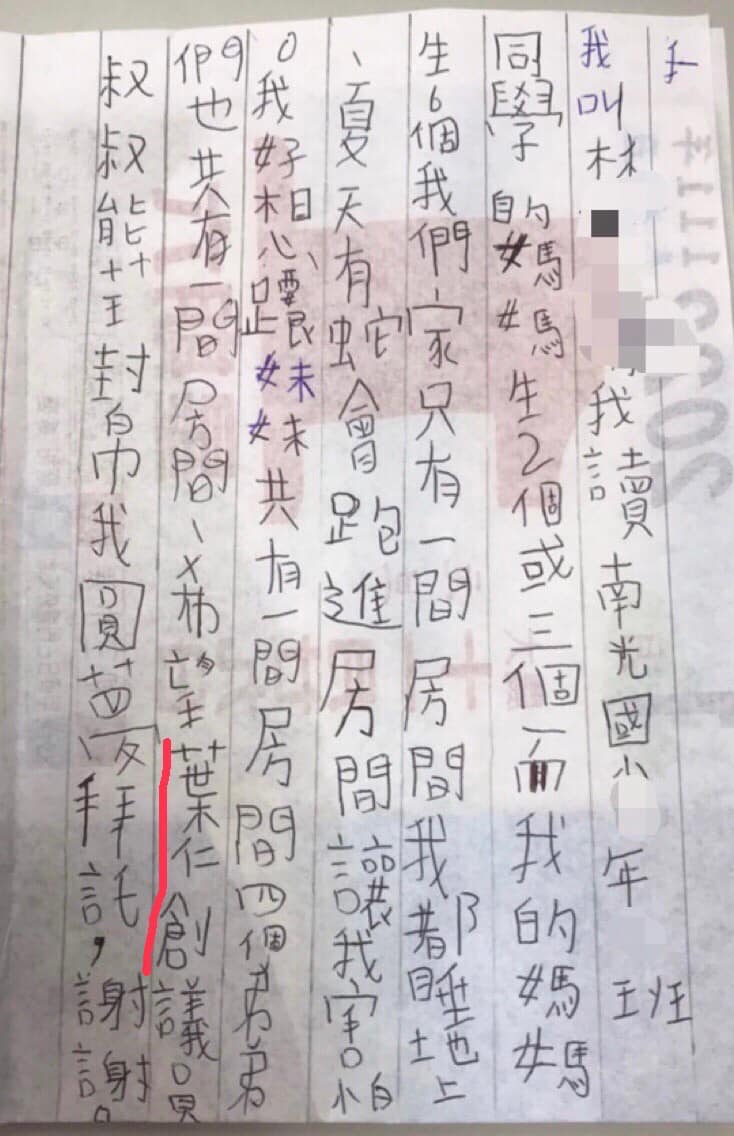 我叫林我讀南光國小年班
同學的媽媽生2個或三個而我的媽媽
生6個我們家只有一間房間我都睡地上
、夏天有蛇會跑進房間讓我害怕
。我好想跟妹妹共有一間房間四個弟弟
們也共有一間房間、希望葉仁創議員
叔叔能幫我圓夢、拜託,謝謝。